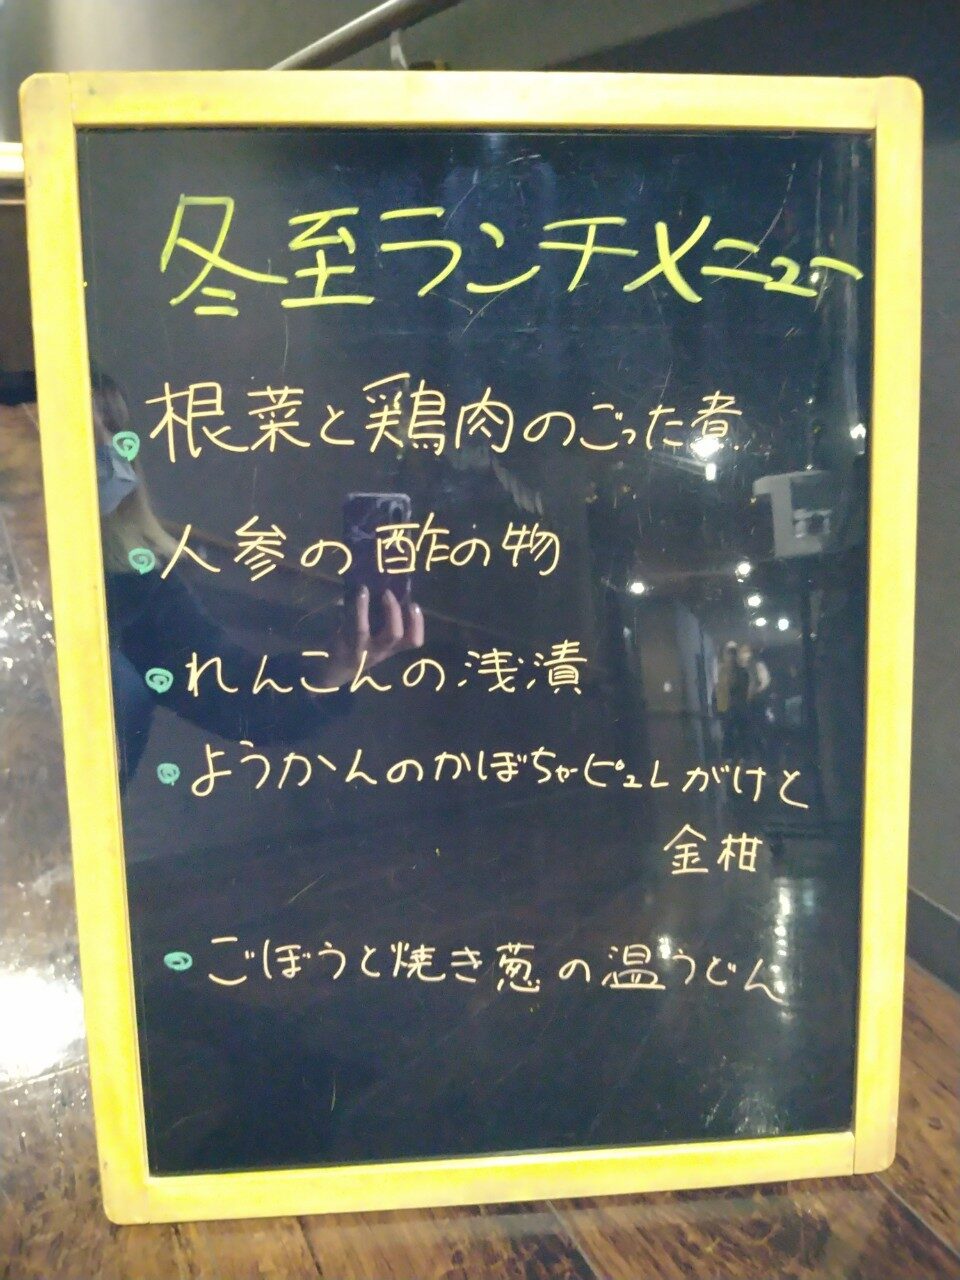 冬至ランチメニュー
根菜と鶏肉のごった煮
人参の酢の物
れんこんの浅漬
ようかんのかぼちゃピュレがけと
金柑
ごぼうと焼き葱の温うどん